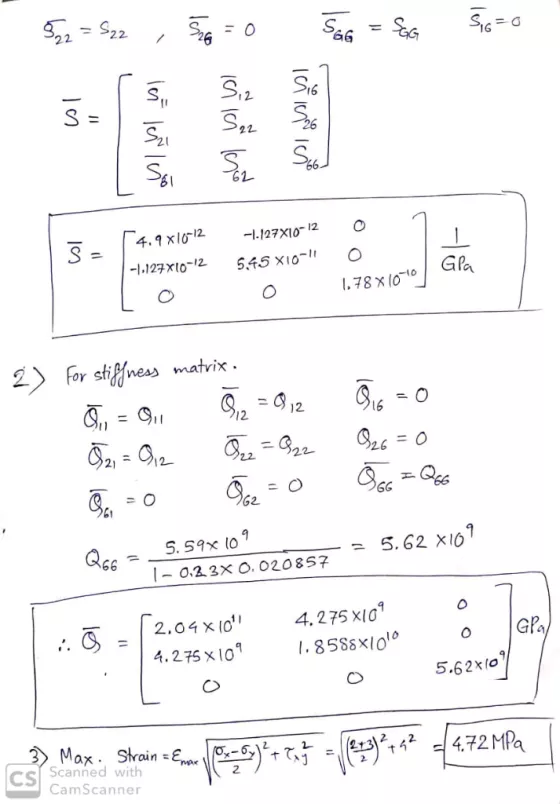 S̅22 = S22 , S̅26 = 0 S̅66 = S66 S̅16 = 0
S̅ = [ S̅11 S̅12 S̅16
S̅21 S̅22 S̅26
S̅61 S̅62 S̅66 ]
S̅ = [ 4.9 x 10^-12 -1.127x10^-12 0
-1.127x10^-12 5.45 x10^-11 0
0 0 1.78 x 10^-10 ] 1/GPa
2) For stiffness matrix.
Q̅11 = Q11 Q̅12 = Q12 Q̅16 = 0
Q̅21 = Q12 Q̅22 = Q22 Q26 = 0
Q̅61 = 0 Q̅62 = 0 Q̅66 = Q66
Q66 = 5.59x 10^9 / 1 - 0.23x 0.020857 = 5.62 x10^9
∴ Q̅ = [ 2.04 x 10^11 4.275 x10^9 0
4.275 x10^9 1.8588x10^10 0
0 0 5.62x10^9 ] GPa
3) Max. Strain = εmax √((σx-σy)/2)^2 + τxy^2 = √((2+3)/2)^2 + 4^2 = 4.72 MPa
CS Scanned with
CamScanner